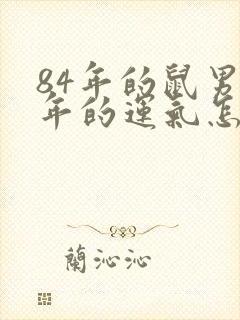 84年的鼠男
年的运氣怎
蘭沁沁